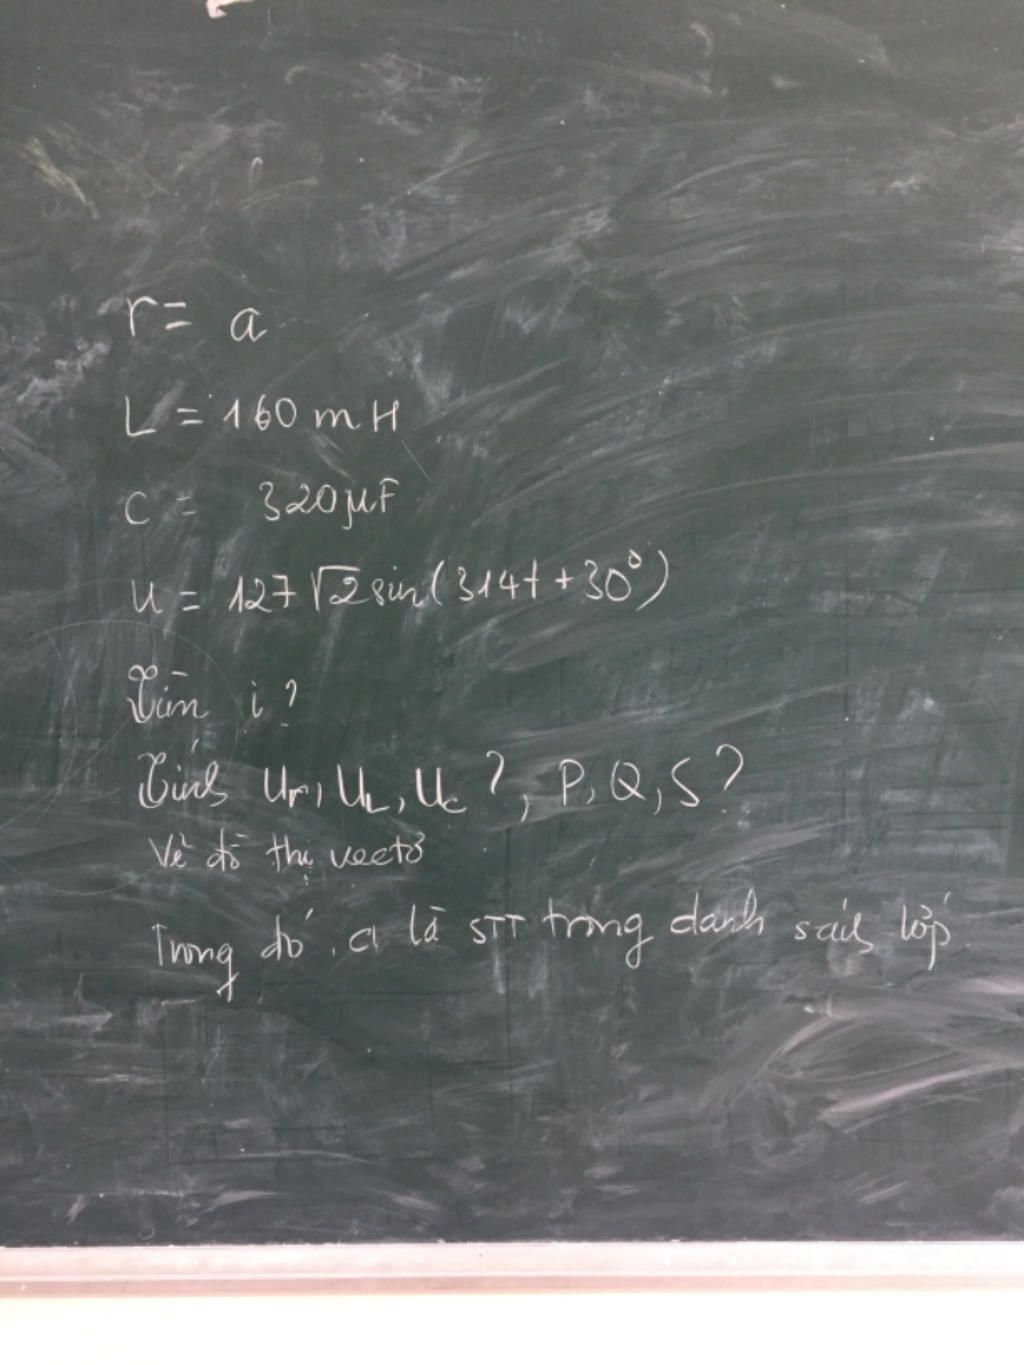 r = a
L = 160 mH
C = 320 μF
u = 127 √2 sin(314t + 30°)
Tìm i?
Tính Ur, UL, Uc ?, P, Q, S ?
Vẽ đồ thị vectơ
Trong đó, a là STT trong danh sách lớp.